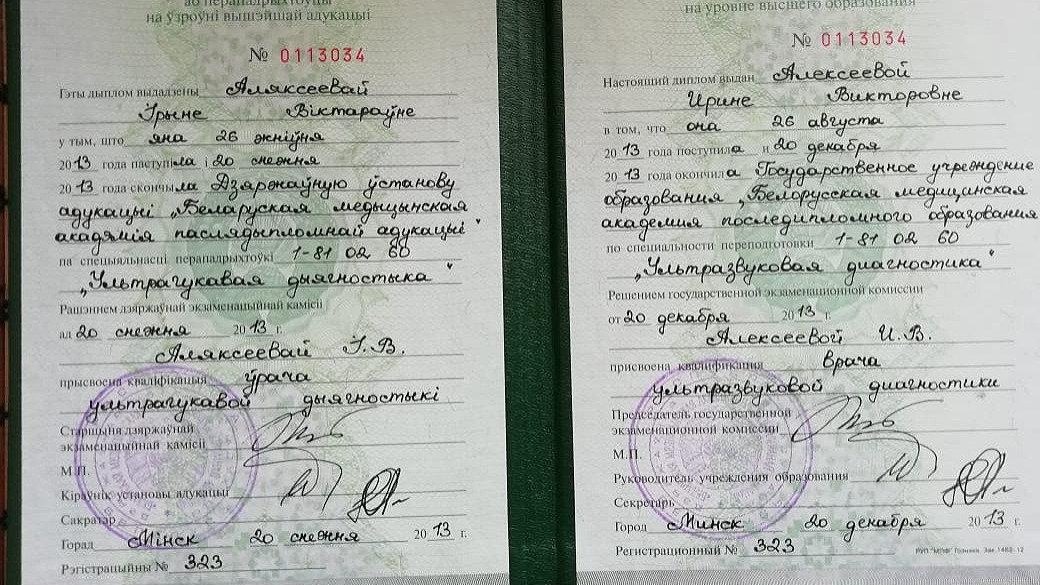 аб перападрыхтоўцы
на ўзроўні вышэйшай адукацыі
№ 0113034
Гэты дыплом выдадзены Аляксеевай
Ірыне Віктараўне
у тым, што яна 26 жніўня
2013 года паступіла і 20 снежня
2013 года скончыла Дзяржаўную ўстанову
адукацыі „Беларуская медыцынская
акадэмія паслядыпломнай адукацыі"
па спецыяльнасці перападрыхтоўкі 1-81 02 60
„Ультрагукавая дыягностыка"
Рашэннем дзяржаўнай экзаменацыйнай камісіі
ад 20 снежня 2013 г.
Аляксеевай І.В.
прысвоена кваліфікацыя ўрача
ультрагукавой дыягностыкі
Старшыня дзяржаўнай
экзаменацыйнай камісіі
М.П.
Кіраўнік установы адукацыі
Сакратар
Горад Мінск 20 снежня 2013 г.
Рэгістрацыйны № 323
на уровне высшего образования
№ 0113034
Настоящий диплом выдан Алексеевой
Ирине Викторовне
в том, что она 26 августа
2013 года поступила и 20 декабря
2013 года окончила Государственное учреждение
образования „Белорусская медицинская
академия последипломного образования
по специальности переподготовки 1-81 02 60
„Ультразвуковая диагностика"
Решением государственной экзаменационной комиссии
от 20 декабря 2013 г.
Алексеевой И.В.
присвоена квалификация врача
ультразвуковой диагностики
Председатель государственной
экзаменационной комиссии
М.П.
Руководитель учреждения образования
Секретарь
Город Минск 20 декабря 2013 г.
Регистрационный № 323